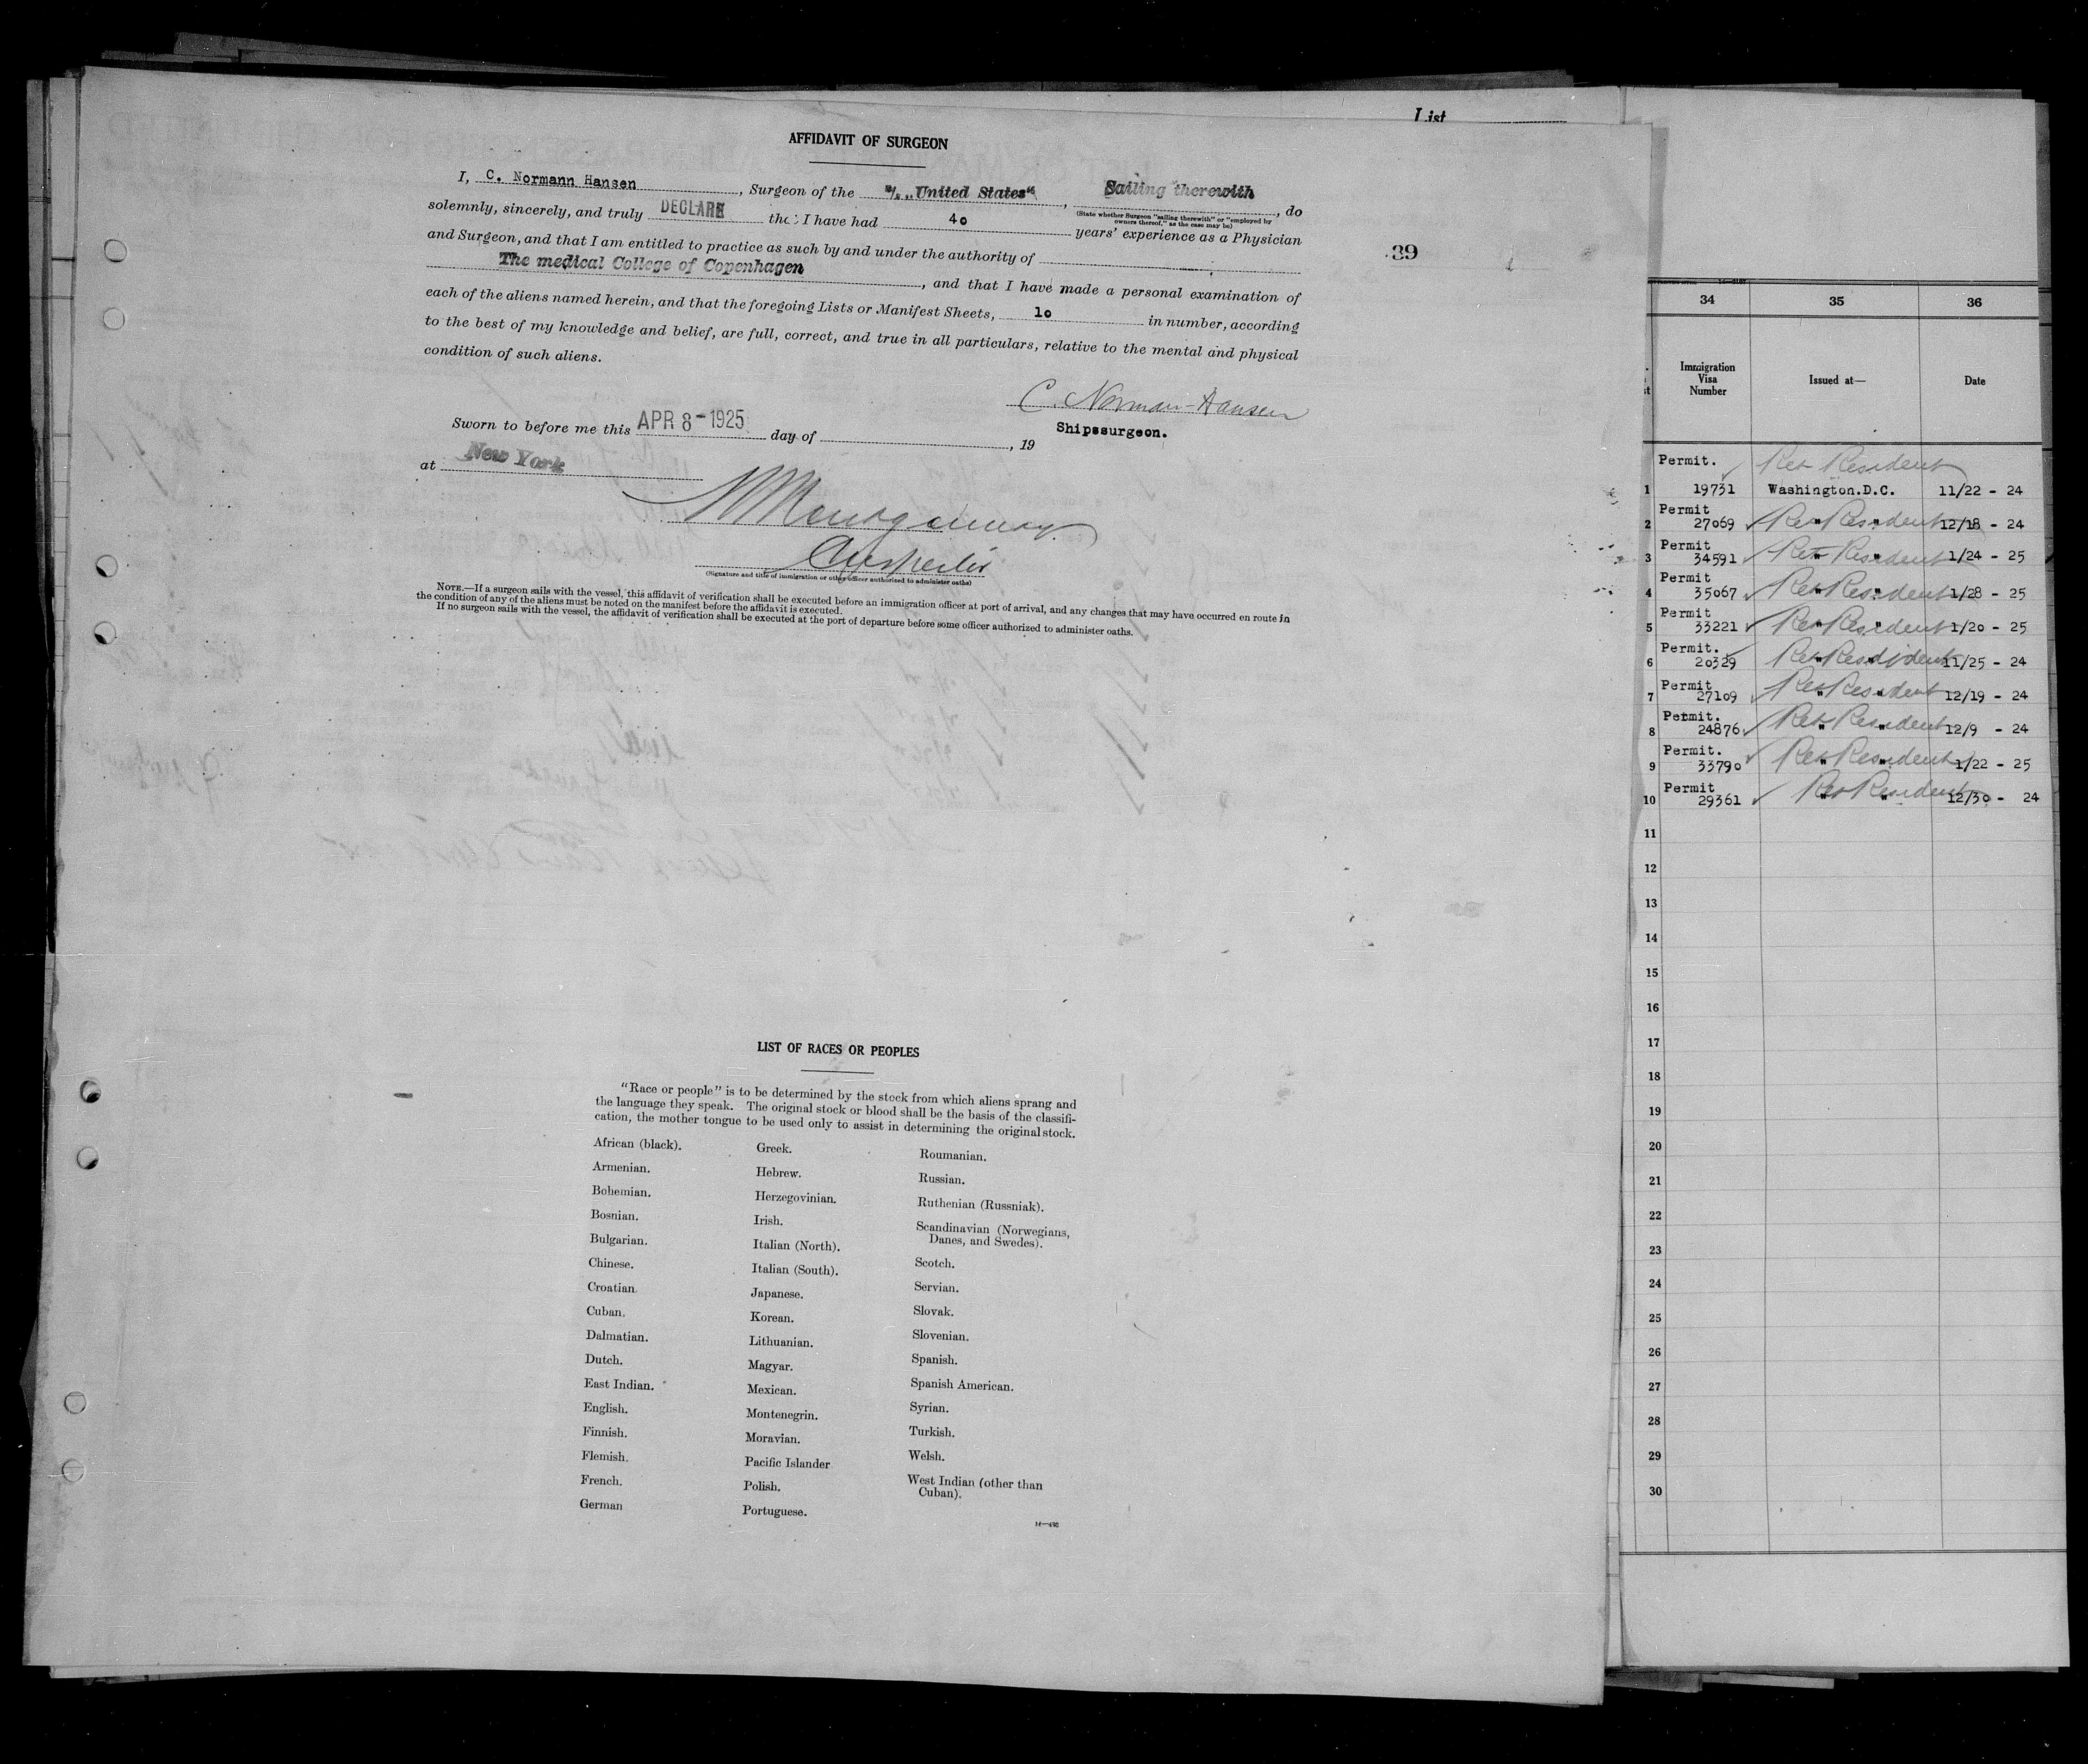 List
AFFIDAVIT OF SURGEON
I, C. Normann Hansen, Surgeon of the S/S. "United States", Sailing therewith, do
(State whether Surgeon "sailing therewith" or "employed by
owners thereof," as the case may be)
solemnly, sincerely, and truly DECLARE that I have had 40 years' experience as a Physician
and Surgeon, and that I am entitled to practice as such by and under the authority of
The medical College of Copenhagen, and that I have made a personal examination of
each of the aliens named herein, and that the foregoing Lists or Manifest Sheets, 10 in number, according
to the best of my knowledge and belief, are full, correct, and true in all particulars, relative to the mental and physical
condition of such aliens.
39
C. Norman-Hansen
Shipssurgeon.
Sworn to before me this APR 8-1925 day of , 19
at New York
(Signature and title of immigration or other officer authorized to administer oaths)
NOTE.—If a surgeon sails with the vessel, this affidavit of verification shall be executed before an immigration officer at port of arrival, and any changes that may have occurred en route in
the condition of any of the aliens must be noted on the manifest before the affidavit is executed.
If no surgeon sails with the vessel, the affidavit of verification shall be executed at the port of departure before some officer authorized to administer oaths.
LIST OF RACES OR PEOPLES
"Race or people" is to be determined by the stock from which aliens sprang and
the language they speak. The original stock or blood shall be the basis of the classifi-
cation, the mother tongue to be used only to assist in determining the original stock.
African (black).
Armenian.
Bohemian.
Bosnian.
Bulgarian.
Chinese.
Croatian.
Cuban.
Dalmatian.
Dutch.
East Indian.
English.
Finnish.
Flemish.
French.
German
Greek.
Hebrew.
Herzegovinian.
Irish.
Italian (North).
Italian (South).
Japanese.
Korean.
Lithuanian.
Magyar.
Mexican.
Montenegrin.
Moravian.
Pacific Islander
Polish.
Portuguese.
Roumanian.
Russian.
Ruthenian (Russniak).
Scandinavian (Norwegians,
Danes, and Swedes).
Scotch.
Servian.
Slovak.
Slovenian.
Spanish.
Spanish American.
Syrian.
Turkish.
Welsh.
West Indian (other than
Cuban).
34 35 36
Immigration
Visa
Number
Issued at—
Date
Permit. Ret Resident
1 19731 Washington.D.C. 11/22 - 24
Permit
2 27069 Ret Resident " " 12/18 - 24
Permit
3 34591 Ret Resident " " 1/24 - 25
Permit
4 35067 Ret Resident " " 1/28 - 25
Permit
5 33221 Ret Resident " " 1/20 - 25
Permit.
6 20329 Ret Resident " " 11/25 - 24
Permit
7 27109 Ret Resident " " 12/19 - 24
Permit.
8 24876 Ret Resident " " 12/9 - 24
Permit.
9 33790 Ret Resident " " 1/22 - 25
Permit
10 29361 Ret Resident " " 12/30 - 24
11
12
13
14
15
16
17
18
19
20
21
22
23
24
25
26
27
28
29
30